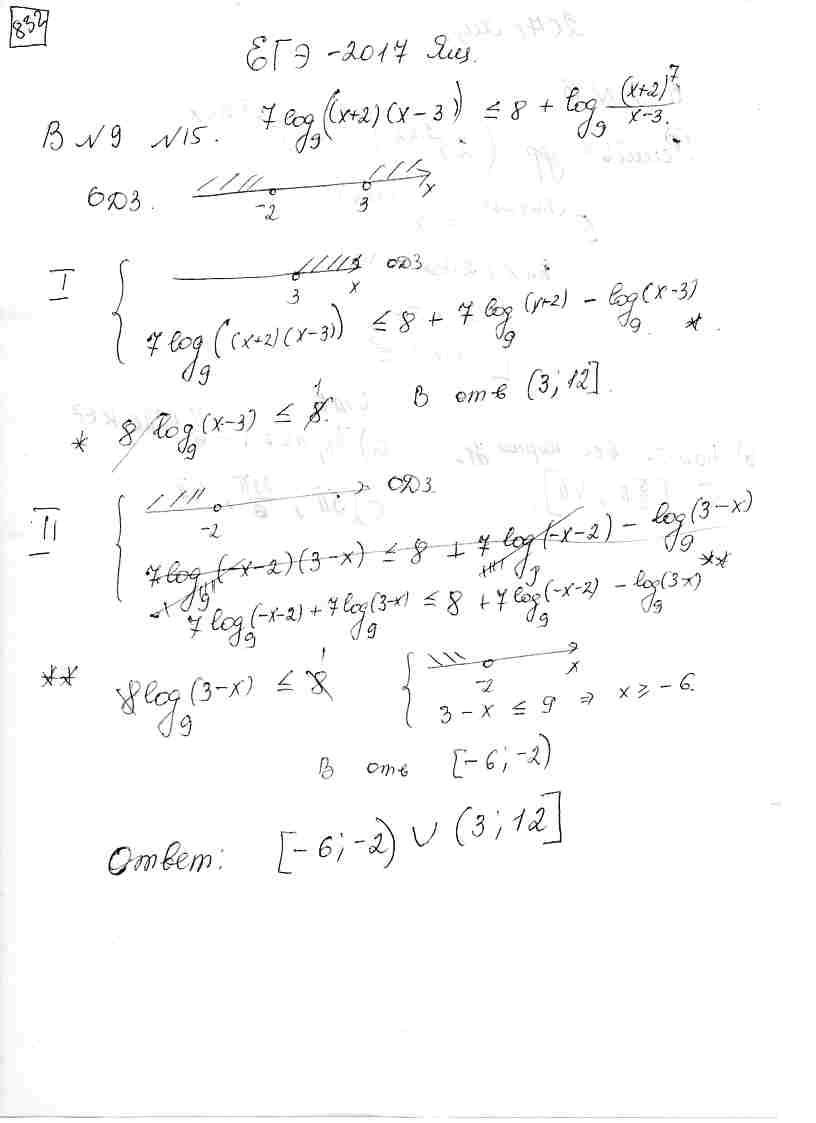 832
ЕГЭ - 2017 Ящ.
В №9 №15. 7 log₉((x+2)(x-3)) ≤ 8 + log₉ (x+2)⁷/(x-3).
ОДЗ. -2 3 x
I { 3 x ОДЗ
7 log₉((x+2)(x-3)) ≤ 8 + 7 log₉(x+2) - log₉(x-3) *.
* 8 log₉(x-3) ≤ 8. 1 В отв (3; 12].
II { -2 ОДЗ.
7 log₉(-x-2)(3-x) ≤ 8 + 7 log₉(-x-2) - log₉(3-x)
7 log₉(-x-2) + 7 log₉(3-x) ≤ 8 + 7 log₉(-x-2) - log₉(3-x) **
** 8 log₉(3-x) ≤ 8 1 { -2 x
3 - x ≤ 9 ⇒ x ≥ -6.
В отв [-6; -2)
Ответ: [-6; -2) ∪ (3; 12]